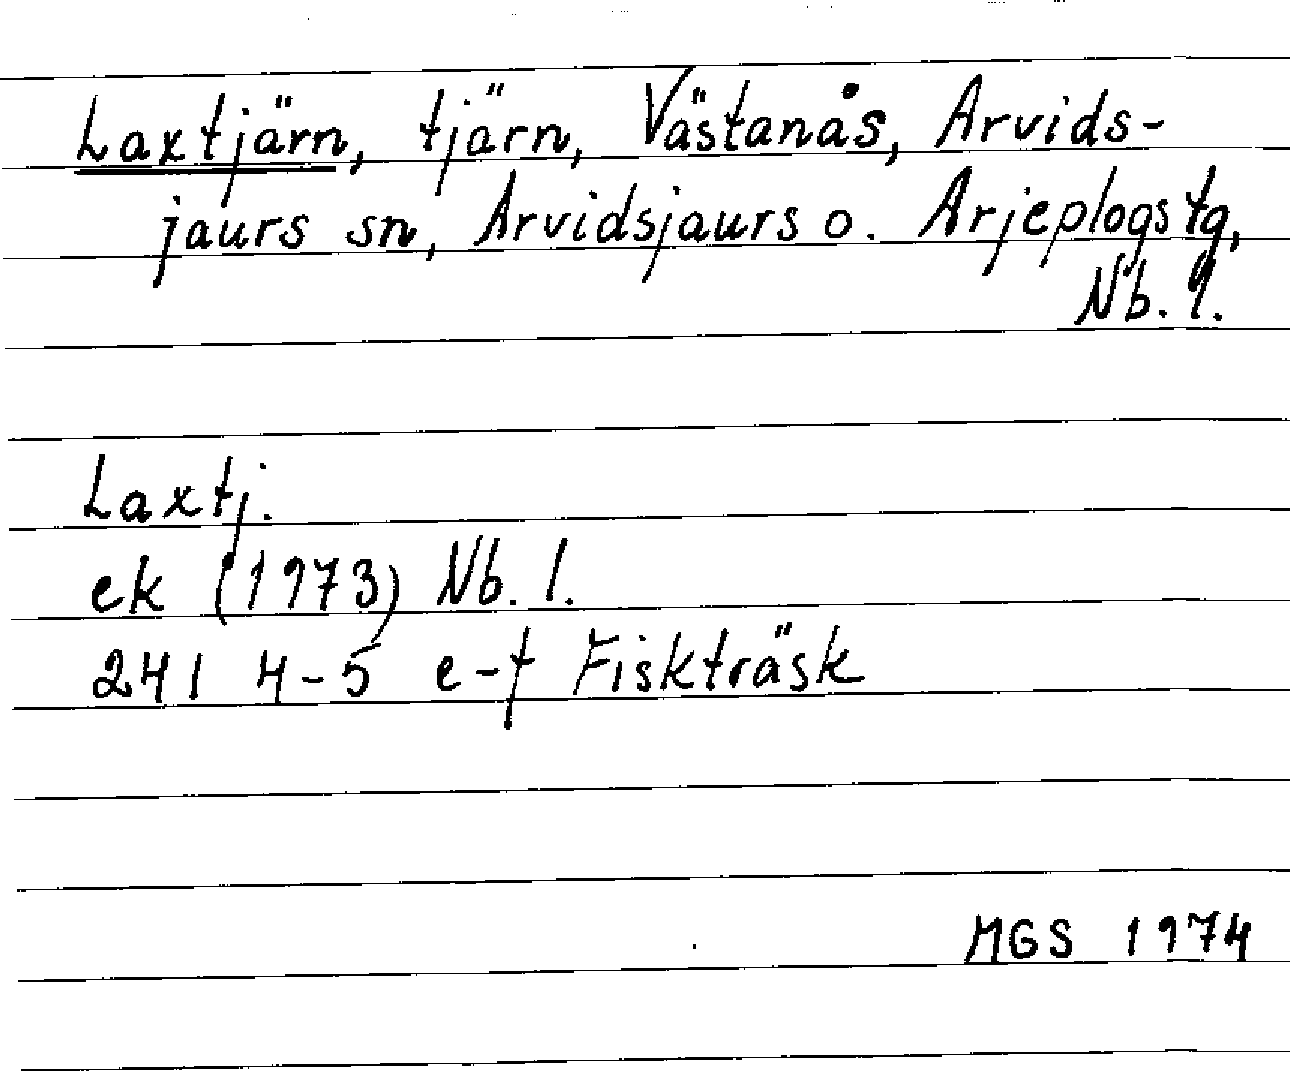 Laxtjärn, tjärn, Västanås, Arvids-
jaurs sn, Arvidsjaurs o. Arjeplogs tg,
Nb. l.
Laxtj.
ek (1973) Nb. l.
241 4-5 e-f Fiskträsk
MGS 1974